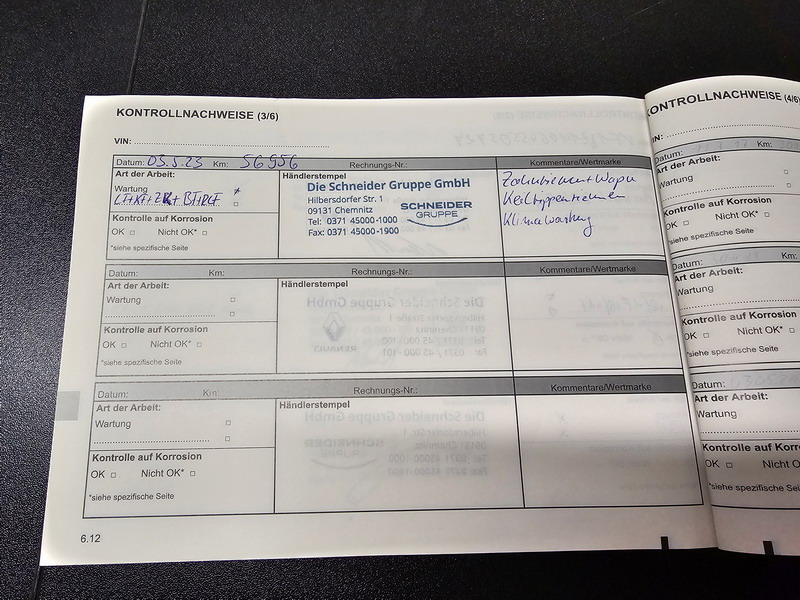 KONTROLLNACHWEISE (3/6)
VIN:
Datum: 03.5.23 Km: 56956 Rechnungs-Nr.: Kommentare/Wertmarke
Art der Arbeit:
Wartung
Kontrolle auf Korrosion
OK Nicht OK*
*siehe spezifische Seite
Händlerstempel
Die Schneider Gruppe GmbH
Hilbersdorfer Str. 1
09131 Chemnitz
Tel: 0371 45000-1000
Fax: 0371 45000-1900
SCHNEIDER
GRUPPE
Zahnriemen + Wapu
Keilrippenriemen
Klimawartung
Datum: Km: Rechnungs-Nr.: Kommentare/Wertmarke
Art der Arbeit:
Wartung
Kontrolle auf Korrosion
OK Nicht OK*
*siehe spezifische Seite
Händlerstempel
Datum: Km: Rechnungs-Nr.: Kommentare/Wertmarke
Art der Arbeit:
Wartung
Kontrolle auf Korrosion
OK Nicht OK*
*siehe spezifische Seite
Händlerstempel
6.12
KONTROLLNACHWEISE (4/6)
VIN:
Datum: Km:
Art der Arbeit:
Wartung
Kontrolle auf Korrosion
OK Nicht OK*
*siehe spezifische Seite
Datum:
Art der Arbeit:
Wartung
Kontrolle auf Korro
OK Nicht OK*
*siehe spezifische Seite
Datum:
Art der Arbeit:
Wartung
Kontrolle auf Korro
OK Nicht O
*siehe spezifische Seite